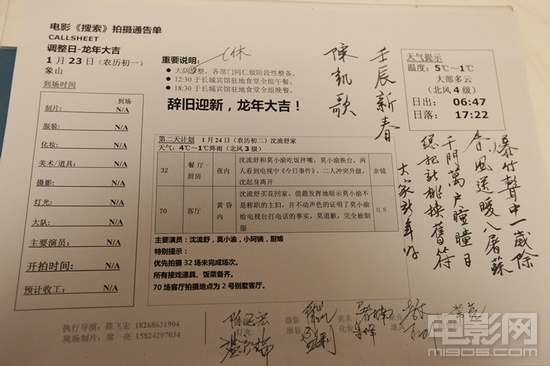 电影《搜索》拍摄通告单
CALLSHEET
调整日-龙年大吉
1 月 23 日（农历初一）
象山
到场时间
到场
制片： N/A
服装： N/A
化妆： N/A
美术/道具： N/A
摄影： N/A
灯光： N/A
大队： N/A
主要演员： N/A
开拍时间： N/A
预计收工： N/A
重要说明：
12:30 于长城宾馆驻地食堂全组午餐。
18:30 于长城宾馆驻地食堂全组晚餐。
辞旧迎新，龙年大吉！
天气提示
温度：5℃～1℃
大部多云
（北风 4 级）
日出： 06:47
日落： 17:22
第二天计划 1 月 24 日（农历初二）沈流舒家
天气：4℃～1℃阵雨（北风 3 级）
32 餐厅－厨房 夜内 沈流舒和莫小渝吃饭拌嘴，莫小渝换台，两人看到电视中《今日事件》，二人冲突升级，沈起身离开 余镜
70 客厅 黄昏内 沈流舒买花回家，借题发挥地暗示莫小渝不是称职的主妇，并不动声色的证明了莫小渝给电视台打电话的事实，莫道歉，完全被制服 0.8
主要演员：沈流舒，莫小渝，小阿姨，厨姐
特别提示：
优先拍摄 32 场未完成场次。
所有接戏道具、饭菜备齐。
70 场客厅拍摄地点为 2 号别墅客厅。
执行导演：陈飞宏 18268631904
现场制片：常 亮 15824297034
壬辰新春
陳凱歌
爆竹聲中一歲除
春風送暖入屠蘇
千門萬户曈曈日
總把新桃換舊符
大家新年好
电影网
m1905.com